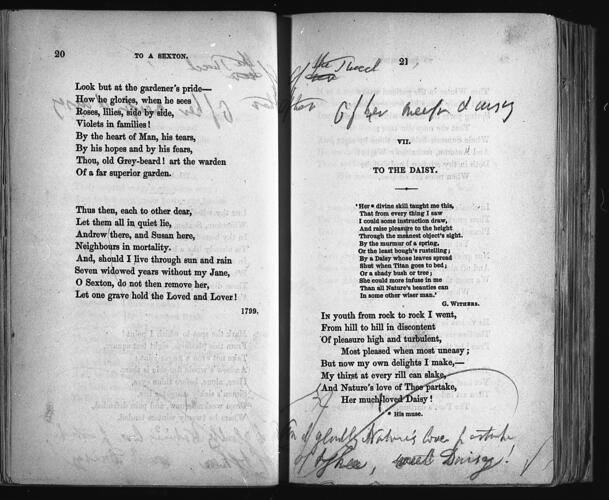 20
TO A SEXTON.
Look but at the gardener's pride—
How he glories, when he sees
Roses, lilies, side by side,
Violets in families!
By the heart of Man, his tears,
By his hopes and by his fears,
Thou, old Grey-beard! art the warden
Of a far superior garden.
Thus then, each to other dear,
Let them all in quiet lie,
Andrew there, and Susan here,
Neighbours in mortality.
And, should I live through sun and rain
Seven widowed years without my Jane,
O Sexton, do not then remove her,
Let one grave hold the Loved and Lover!
1799.
21
the
VII.
TO THE DAISY.
'Her * divine skill taught me this,
That from every thing I saw
I could some instruction draw,
And raise pleasure to the height
Through the meanest object's sight.
By the murmur of a spring,
Or the least bough's rustelling;
By a Daisy whose leaves spread
Shut when Titan goes to bed;
Or a shady bush or tree;
She could more infuse in me
Than all Nature's beauties can
In some other wiser man.'
G. WITHERS.
In youth from rock to rock I went,
From hill to hill in discontent
Of pleasure high and turbulent,
Most pleased when most uneasy;
But now my own delights I make,—
My thirst at every rill can slake,
And Nature's love of Thee partake,
Her much-loved Daisy!
* His muse.
gladly Nature's love partake
of Thee, sweet Daisy!